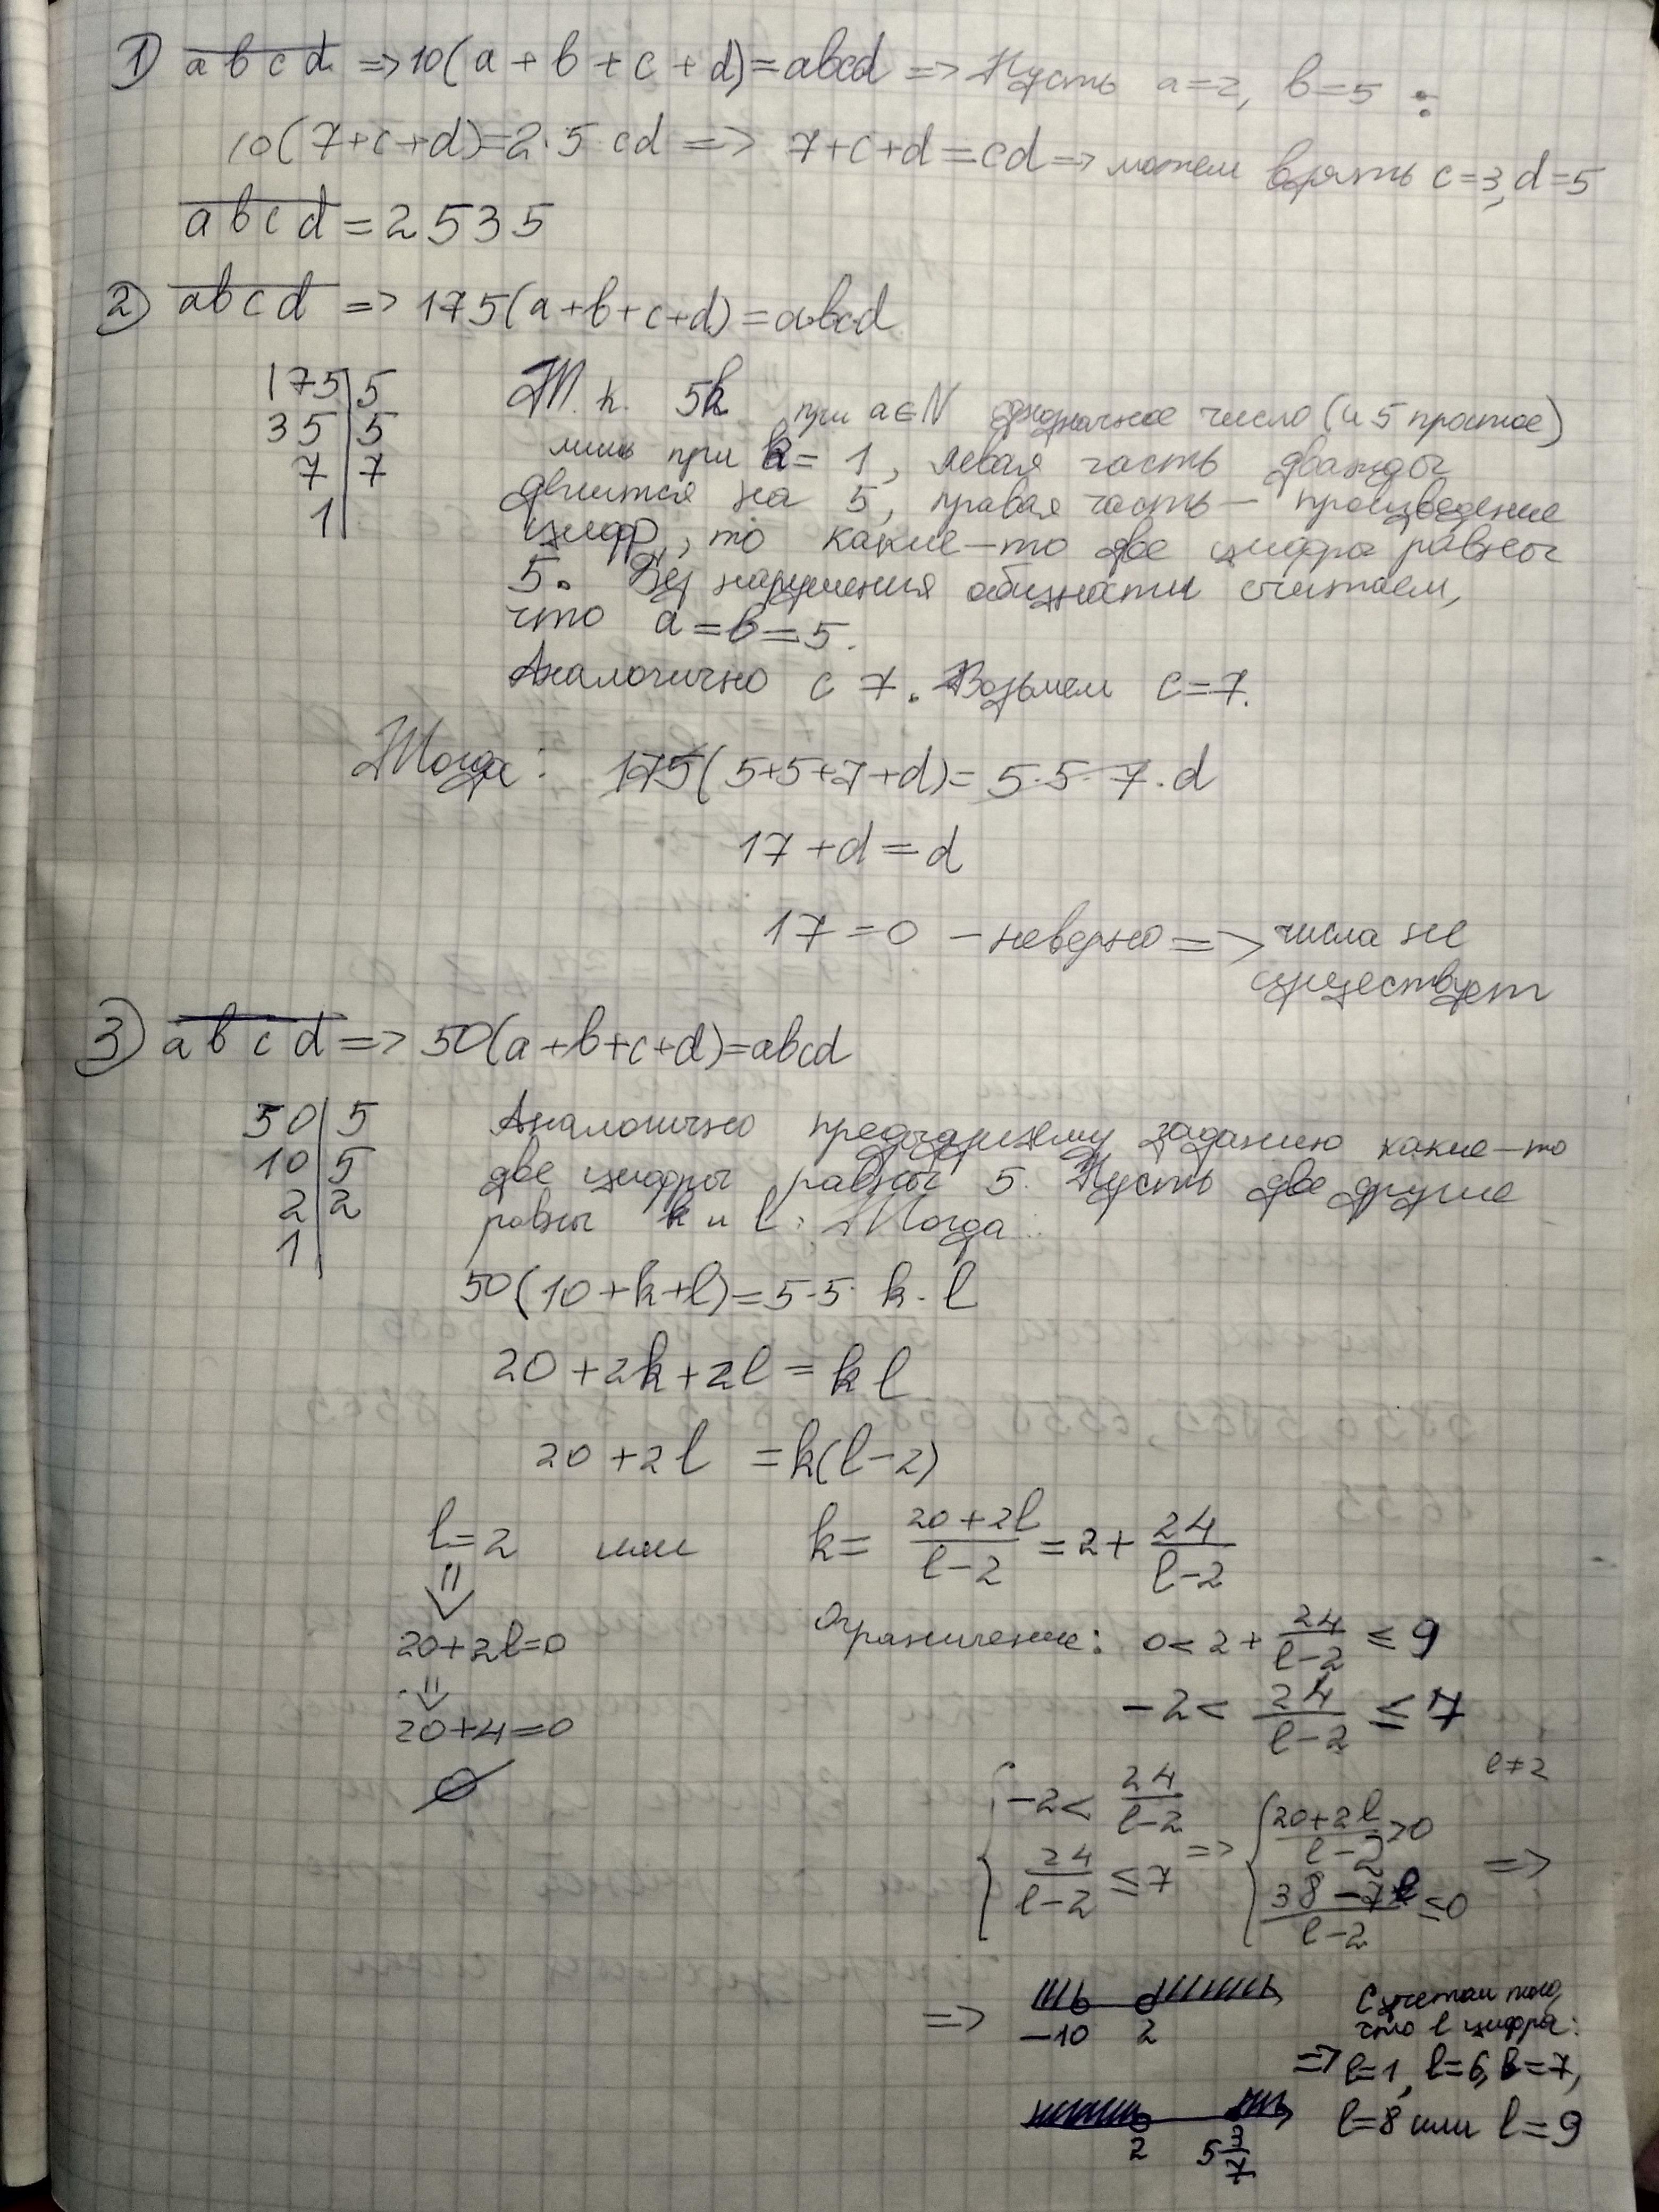 1) abcd => 10(a+b+c+d)=abcd => Пусть a=2, b=5 :
10(7+c+d)=2·5 cd => 7+c+d=cd => можем взять c=3, d=5
abcd = 2535
2) abcd => 175(a+b+c+d)=abcd
175|5
35|5
7|7
1|
Т.к. 5k при a∈N однозначное число (и 5 простое)
лишь при k=1, левая часть дважды
делится на 5, правая часть – произведение
цифр, то какие-то две цифры равны
5. Без нарушения общности считаем,
что a=b=5.
Аналогично с 7. Возьмем c=7.
Тогда: 175(5+5+7+d)=5·5·7·d
17+d=d
17=0 – неверно => числа не
существует
3) abcd => 50(a+b+c+d)=abcd
50|5
10|5
2|2
1|
Аналогично предыдущему заданию какие-то
две цифры равны 5. Пусть две другие
равны k и l. Тогда:
50(10+k+l)=5·5·k·l
20+2k+2l=kl
20+2l=k(l-2)
l=2 или k= 20+2l / l-2 = 2+ 24 / l-2
=>
20+2l=0
=>
20+4=0
∅
Ограничение: 0<2+ 24 / l-2 ≤ 9
-2< 24 / l-2 ≤ 7
l≠2
{ -2< 24 / l-2
24 / l-2 ≤7 => { 20+2l / l-2 >0
38-7l / l-2 ≤0 =>
=> -10 2
2 5 3/7
С учетом того,
что l цифра:
=> l=1, l=6, l=7,
l=8 или l=9